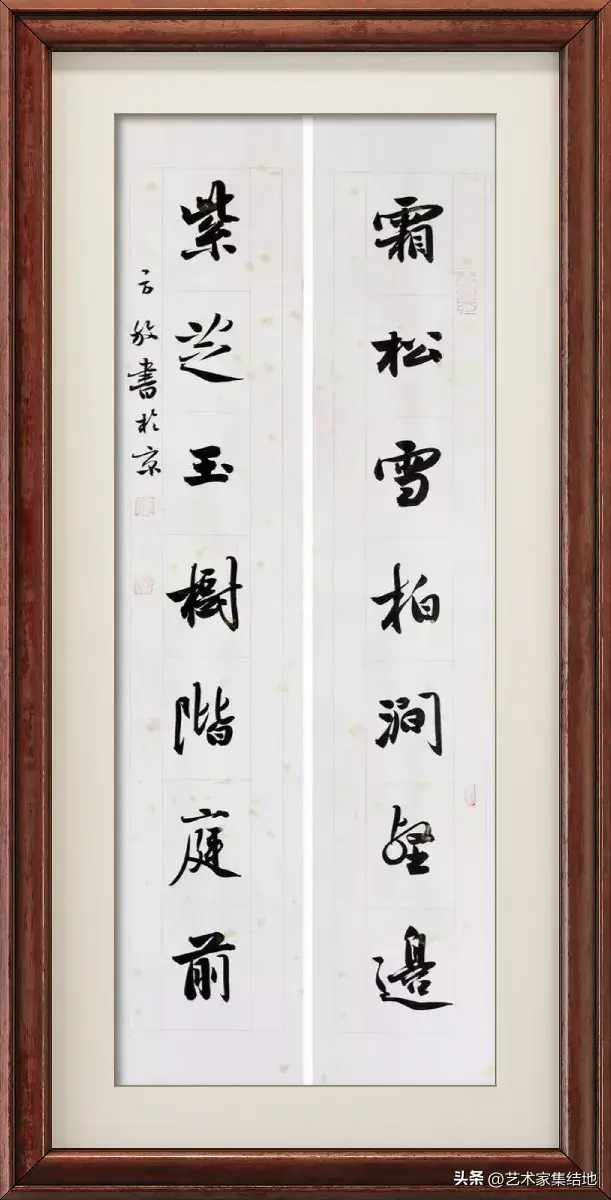 霜松雪柏澗壑邊
紫芝玉樹階庭前
書於京
头条 @艺术家集结地